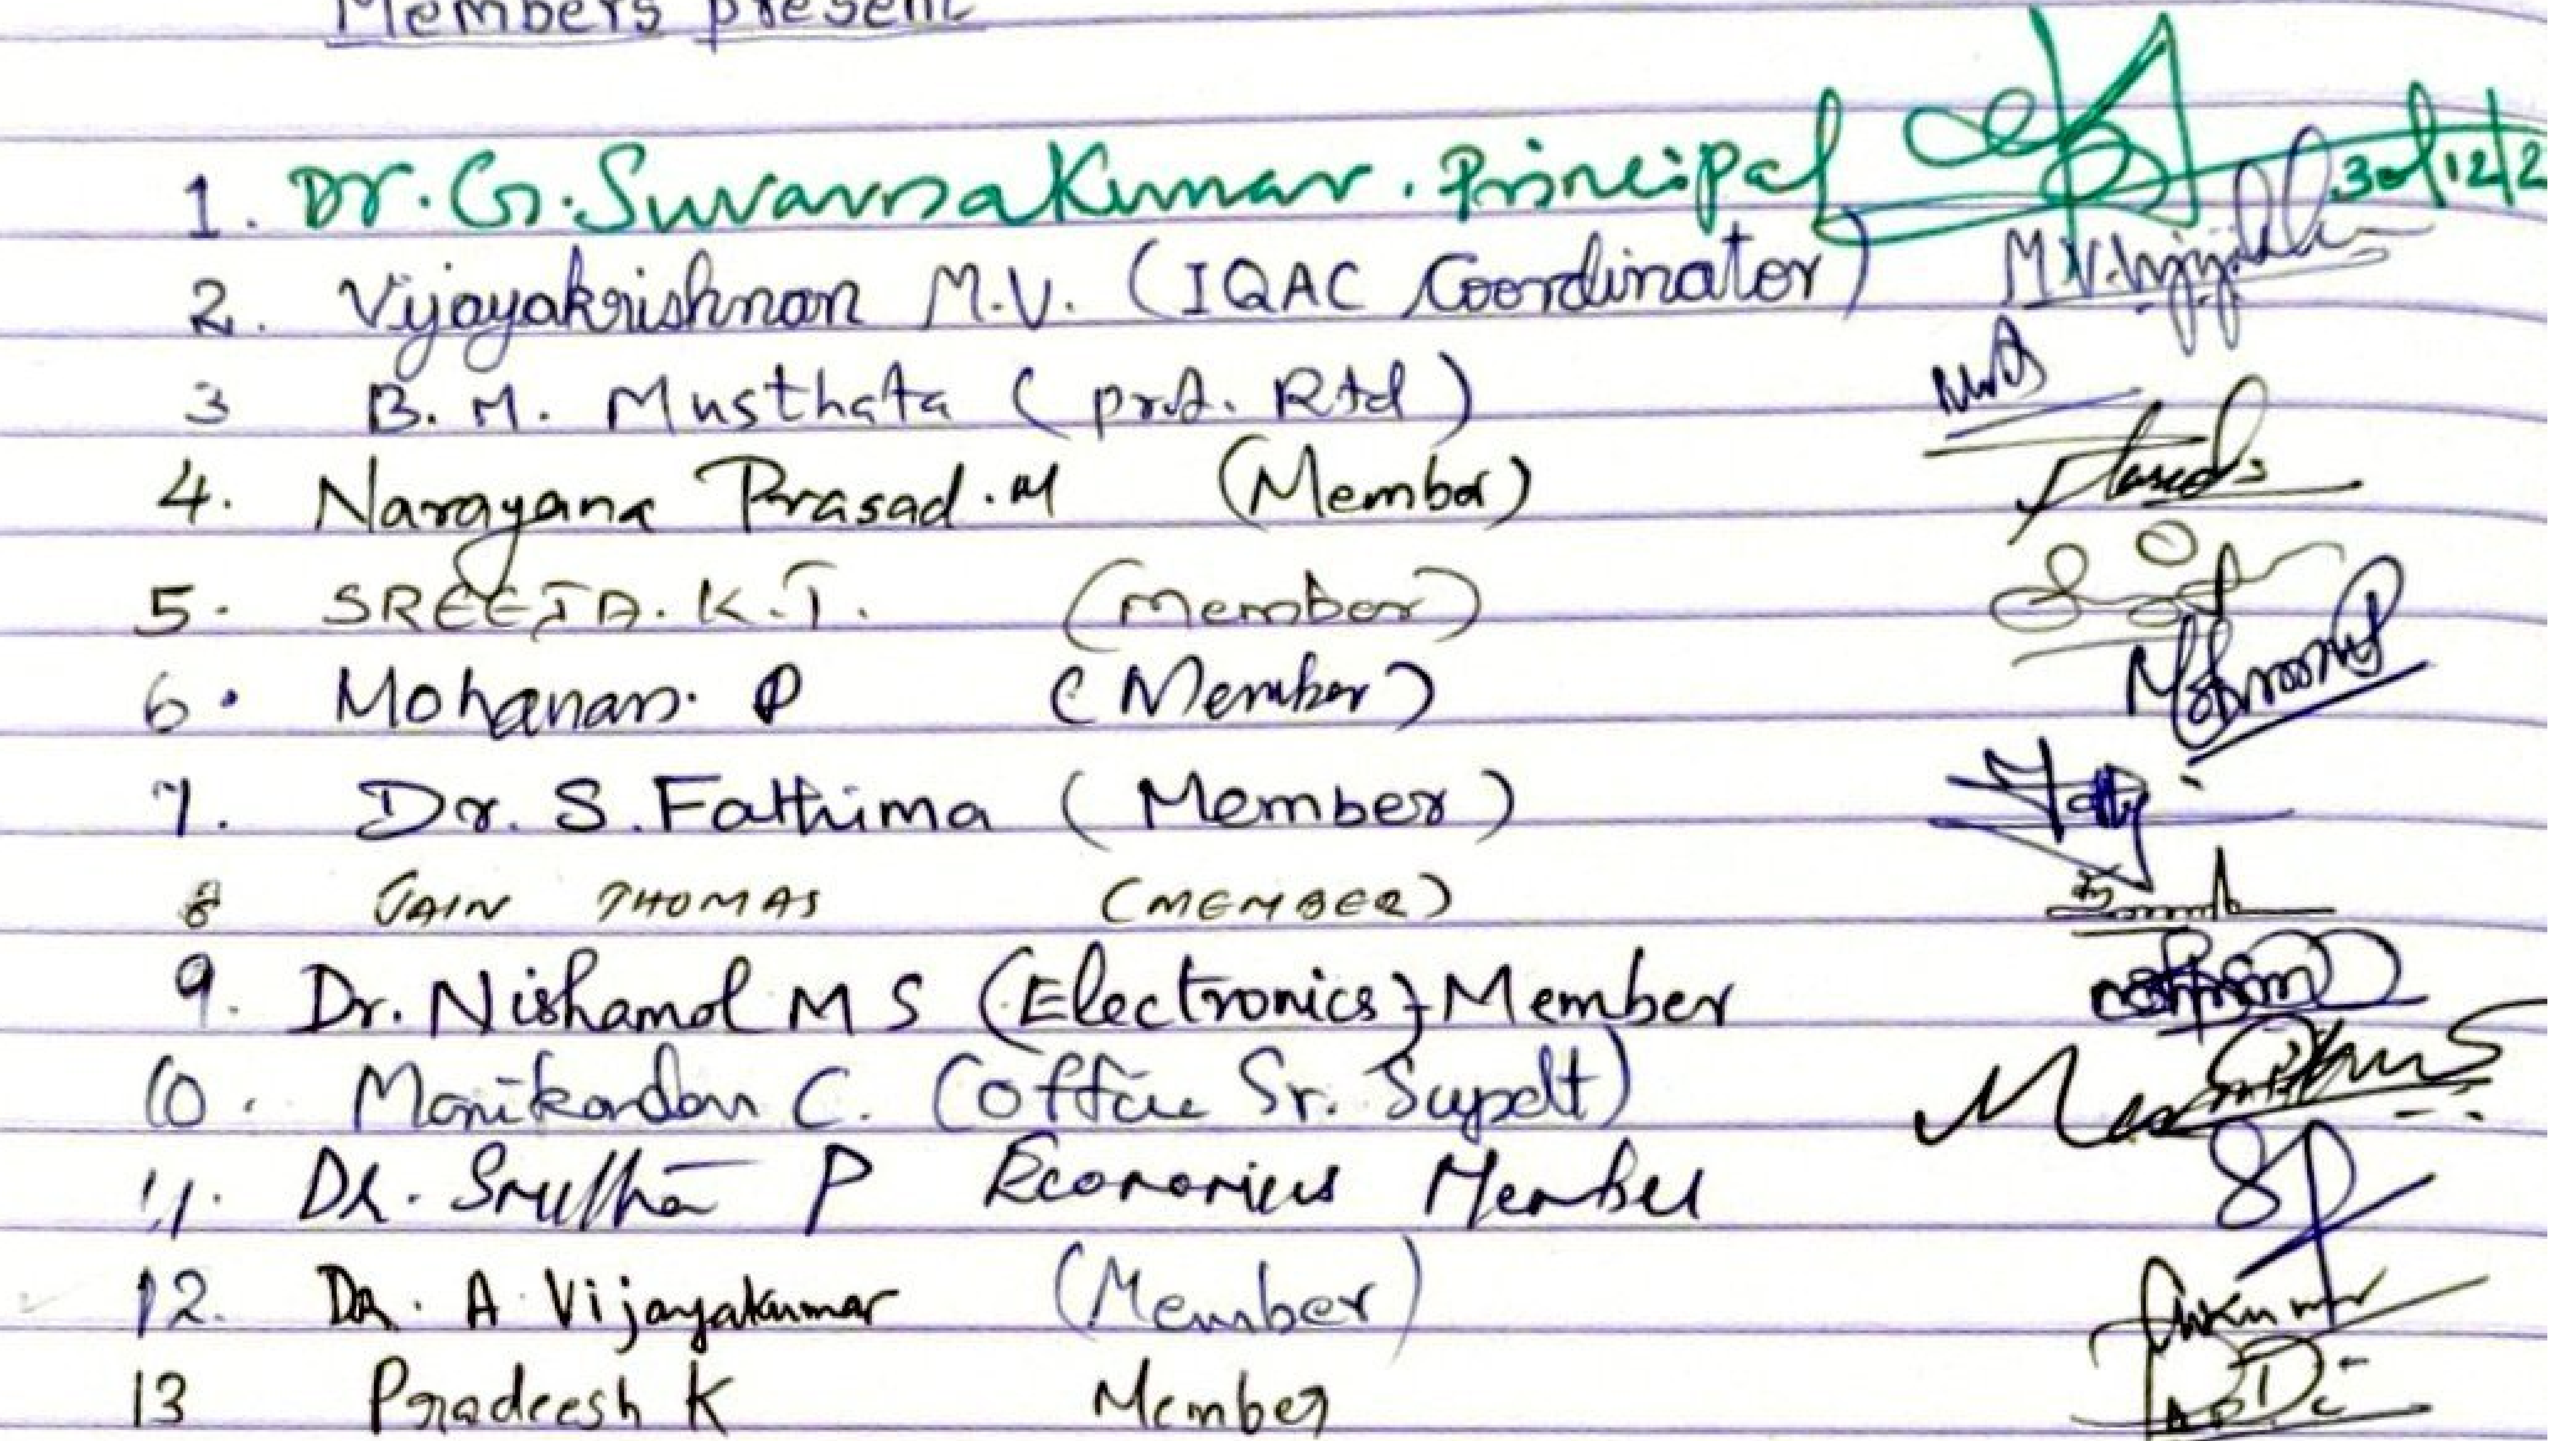 Members present
1. Dr. G. Suvarna Kumar. Principal 30/12/2
2. Vijayakrishnan M.V. (IQAC Coordinator) M.V.
3 B. M. Musthafa (prof. Rtd)
4. Narayana Prasad. M (Member)
5. SREEJA. K.T. (Member)
6. Mohanan. P (Member)
7. Dr. S. Fathima (Member)
8 JAIN THOMAS (MEMBER)
9. Dr. Nishamol M S (Electronics) Member
10. Manikandan C. (Office Sr. Supdt)
11. Dr. Sruthi P Economics Member
12. Dr. A Vijayakumar (Member)
13 Pradeesh K Member